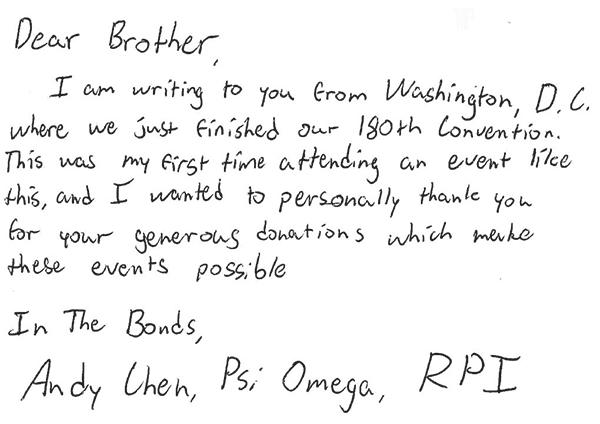 Dear Brother,
I am writing to you from Washington, D.C.
where we just finished our 180th Convention.
This was my first time attending an event like
this, and I wanted to personally thank you
for your generous donations which make
these events possible
In The Bonds,
Andy Chen, Psi Omega, RPI